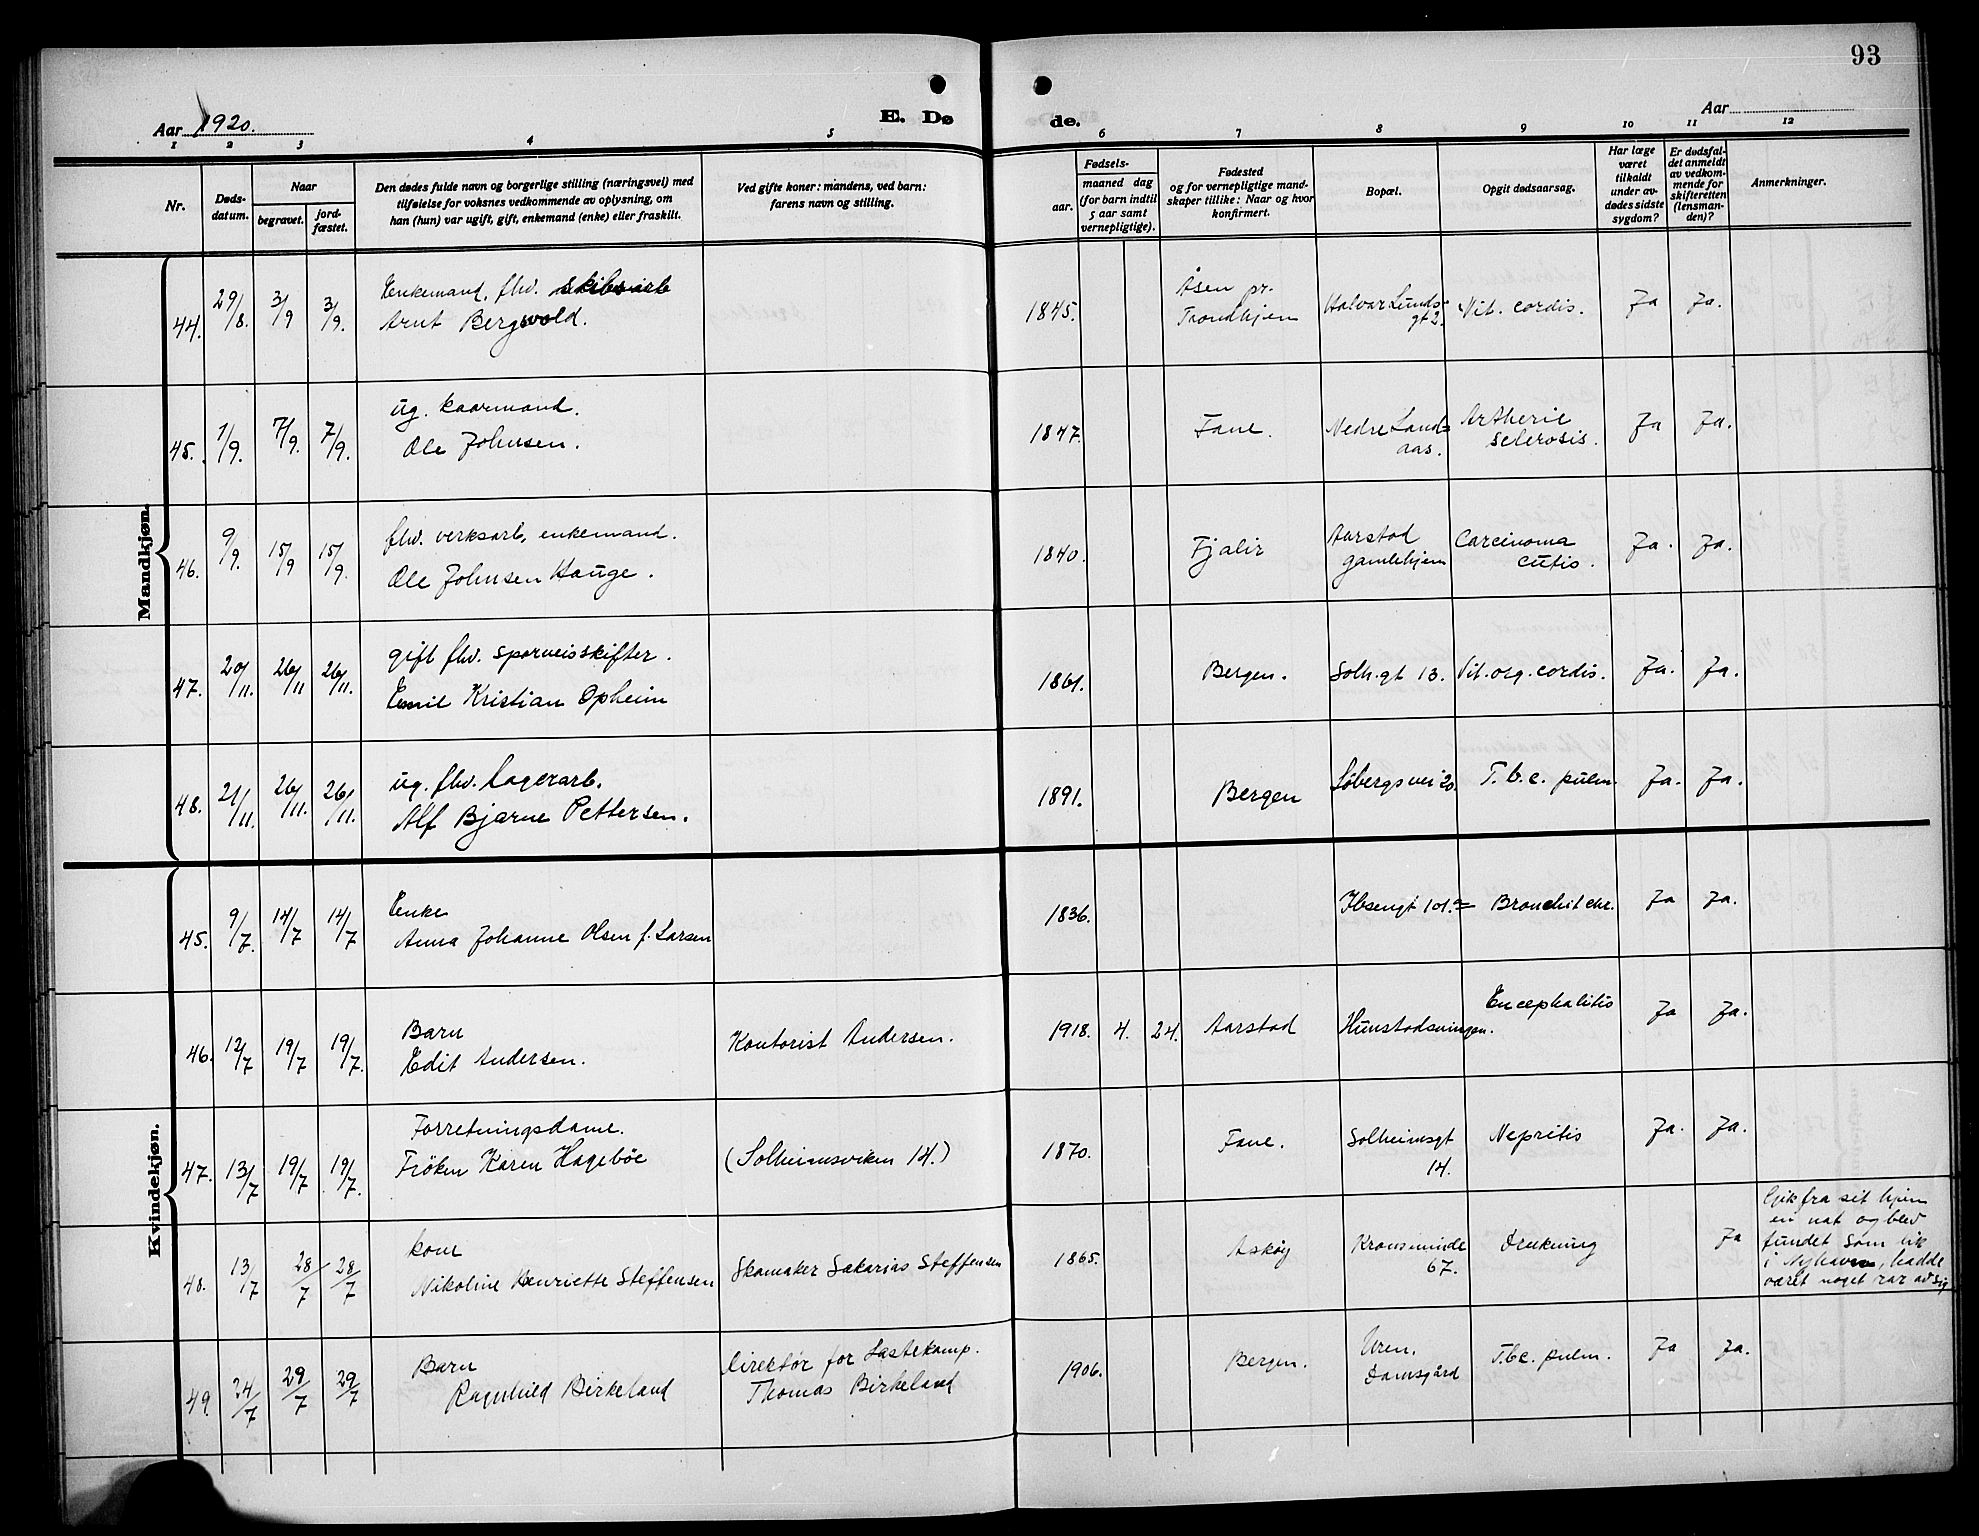 93
Aar 1920.
E. Dø
de.
Aar
1 2 3 4 5 6 7 8 9 10 11 12
Nr.
Døds-
datum.
Naar
begravet.
jord-
fæstet.
Den dødes fulde navn og borgerlige stilling (næringsvei) med
tilføielse for voksnes vedkommende av oplysning, om
han (hun) var ugift, gift, enkemand (enke) eller fraskilt.
Ved gifte koner: mandens, ved barn:
farens navn og stilling.
Fødsels-
aar.
maaned dag
(for barn indtil
5 aar samt
vernepligtige).
Fødested
og for vernepligtige mand-
skaper tillike: Naar og hvor
konfirmert.
Bopæl.
Opgit dødsaarsag.
Har læge
været
tilkaldt
under av-
dødes sidste
sygdom?
Er dødsfal-
det anmeldt
av vedkom-
mende for
skifteretten
(lensman-
den)?
Anmerkninger.
Mandkjøn.
44. 29/8. 3/9 3/9.
Enkemand, fhv. skibsarb
Arnt Bergsvold.
1845.
Åsen pr.
Trondhjem
Halvar Lunds-
gt 2.
Vit. cordis.
Ja Ja.
45. 1/9. 7/9. 7/9.
ug. kaarmand.
Ole Johnsen.
1847.
Fane.
Nedre Land=
aas.
Artherie
sclerosis.
Ja Ja.
46. 9/9. 15/9 15/9.
fhv. verksarb, enkemand.
Ole Johnsen Hauge.
1840.
Fjalir
Aarstad
gamlehjem
Carcinoma
cutis.
Ja. Ja.
47. 20/11. 26/11 26/11.
gift fhv. sporveisskifter.
Emil Kristian Opheim
1861.
Bergen.
Solh.gt 13.
Vit. org. cordis.
Ja. Ja.
48. 21/11. 26/11. 26/11.
ug. fhv. Lagerarb.
Alf Bjarne Pettersen.
1891.
Bergen
Løbergsvei 20.
T.b.c. pulm.
Ja. Ja.
Kvindekjøn.
45. 9/7. 14/7 14/7
Enke
Anna Johanne Olsen f. Larsen
1836.
Ibsengt 101.
Bronchit chr.
Ja Ja.
46. 12/7 19/7 19/7.
Barn
Edit Andersen.
Kontorist Andersen.
1918. 4. 24.
Aarstad
Hunstadsvingen.
Encephalitis
Ja Ja.
47. 13/7 19/7 19/7.
Forretningsdame.
Frøken Karen Hagebøe
(Solheimsviken 14.)
1870.
Fane.
Solheimsgt
14.
Nepritis
Ja. Ja.
48. 13/7 28/7 28/7
kone
Nikoline Henriette Steffensen
Skomaker Sakarias Steffensen
1865.
Askøy
Kronsminde
67.
Drukning
Ja
Gik fra sit hjem
en nat og blev
fundet som lik
i Nyhavn, hadde
været noget rar av sig
49. 24/7 29/7 29/7
Barn
Ragnhild Birkeland
Direktør for Lastekomp.
Thomas Birkeland
1906.
Bergen.
Uren,
Damsgård
T.b.c. pulm.
Ja Ja.